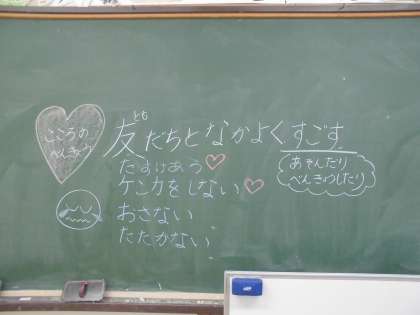 こころの
べんきょう
とも
友だちとなかよくすごす
たすけあう♡
ケンカをしない♡
おさない
たたかない
あそんだり
べんきょうしたり